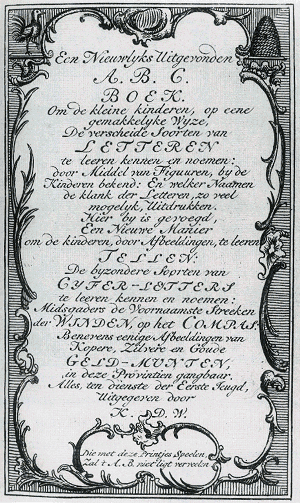 Een Nieuwlyks Uitgevonden
A. B. C.
BOEK.
Om de kleine kinderen, op eene
gemakkelyke Wyze,
De verscheide Soorten van
LETTEREN
te leeren kennen en noemen:
door Middel van Figuuren, by de
Kinderen bekend: En welker Naamen
de klank der Letteren, zo veel
mogelyk, Uitdrukken.
Hier by is gevoegd,
Een Nieuwe Manier
om de kinderen, door Afbeeldingen, te leeren
TELLEN:
De byzondere Soorten van
CYFER-LETTERS
te leeren kennen en noemen:
Midsgaders de Voornaamste Streeken
der WINDEN, op het COMPAS:
Benevens eenige Afbeeldingen van
Kopere, Zilvere en Goude
GELD-MUNTEN,
in deze Provintien gangbaar.
Alles, ten dienste der Eerste Jeugd,
Uitgegeven door
K. D. W.
Die met deze Printjes Speelen,
Zal 't A.B. niet ligt verveelen